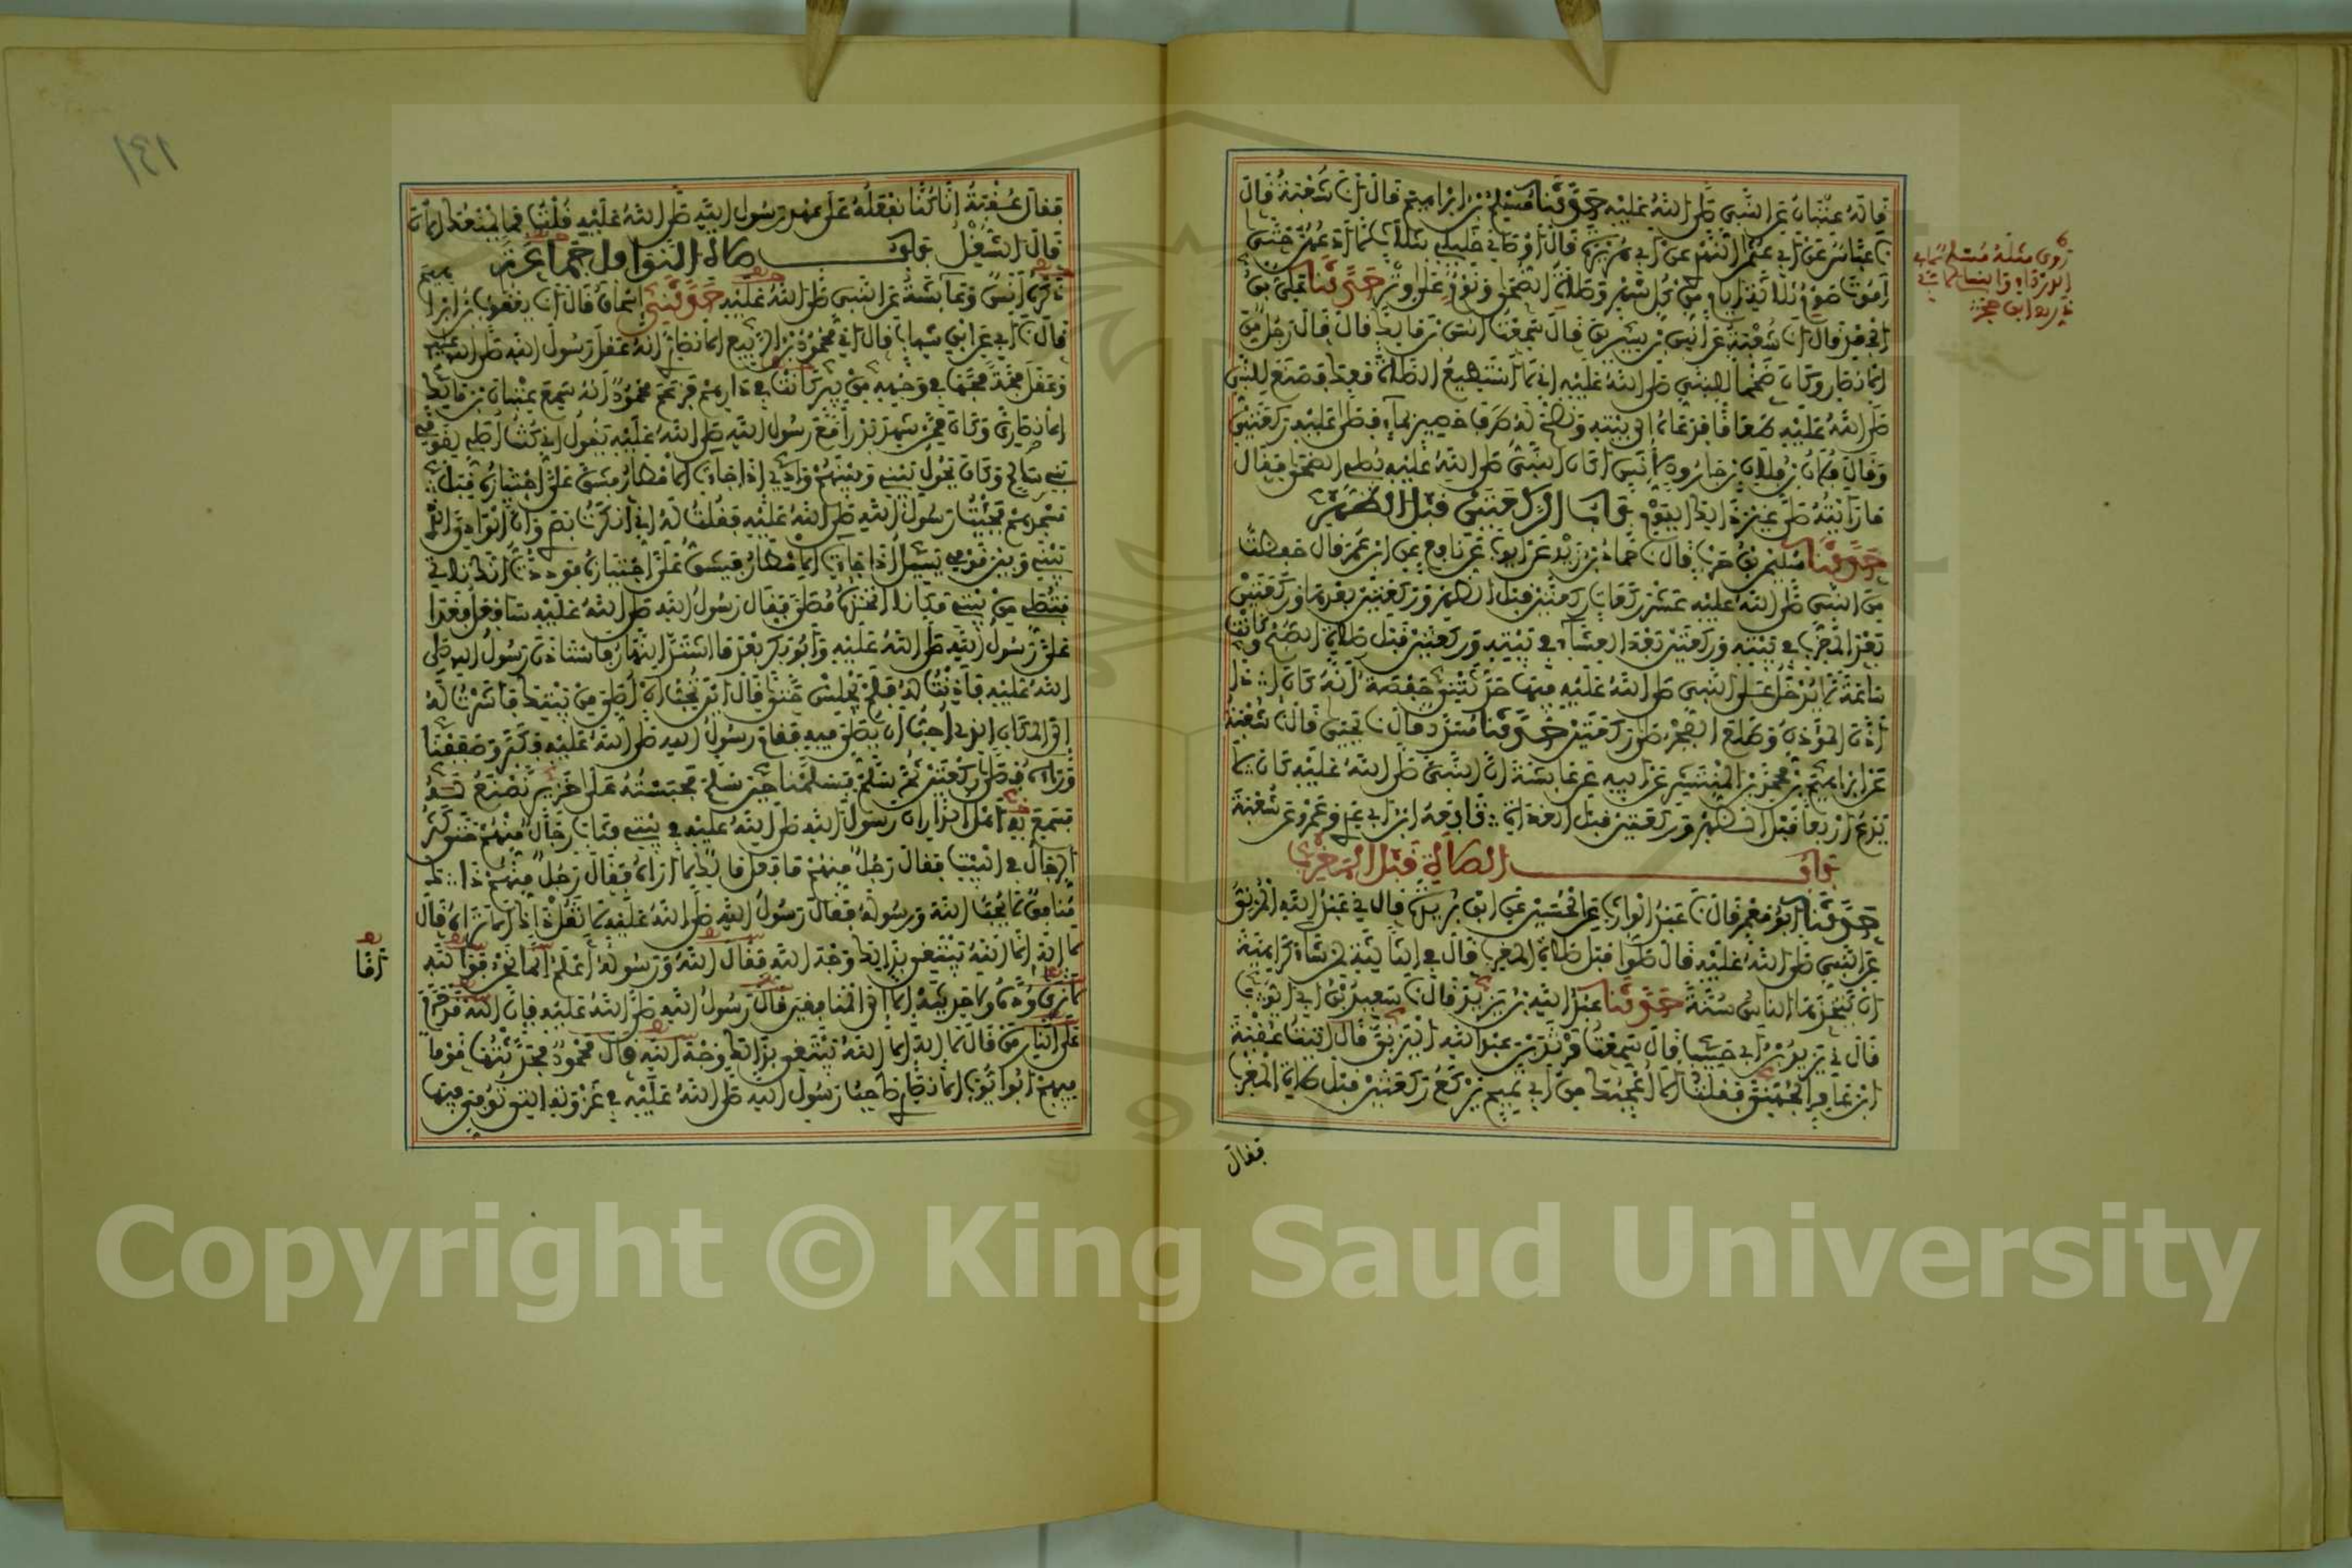 قاله عتبان عن النبي صلى الله عليه حدثنا مسلم بن ابراهيم قال نا شعبة قال
نا عباس عن ابي عثمن النهدي عن ابي هريرة قال اوصاني خليلي بثلاث لا ادعهن حتى
اموت صوم ثلاثة ايام من كل شهر وصلاة الضحى ونوم على وتر حدثنا علي بن
الجعد قال انا شعبة عن انس بن سيرين قال سمعت انس بن مالك قال قال رجل من
الانصار وكان ضخما للنبي صلى الله عليه اني لا استطيع الصلاة معك فصنع للنبي
صلى الله عليه طعاما فدعاه الى بيته ونضح له طرف حصير بماء فصلى عليه ركعتين
وقال فلان بن فلان بن جارود لانس اكان النبي صلى الله عليه يصلي الضحى فقال
ما رايته صلى غير ذلك اليوم باب الركعتين قبل الظهر
حدثنا سليمن بن حرب قال نا حماد بن زيد عن ايوب عن نافع عن ابن عمر قال حفظت
من النبي صلى الله عليه عشر ركعات ركعتين قبل الظهر وركعتين بعدها وركعتين
بعد المغرب في بيته وركعتين بعد العشاء في بيته وركعتين قبل صلاة الصبح وكانت
ساعة لا يدخل على النبي صلى الله عليه فيها حدثتني حفصة انه كان اذا
اذن المؤذن وطلع الفجر صلى ركعتين حدثنا مسدد قال نا يحيى قال نا شعبة
عن ابراهيم بن محمد بن المنتشر عن ابيه عن عائشة ان النبي صلى الله عليه كان لا
يدع اربعا قبل الظهر وركعتين قبل الغداة تابعه ابن ابي عدي وعمرو عن شعبة
باب الصلاة قبل المغرب
حدثنا ابو معمر قال نا عبد الوارث عن الحسين عن ابن بريدة قال ني عبد الله المزني
عن النبي صلى الله عليه قال صلوا قبل صلاة المغرب قال في الثالثة لمن شاء كراهية
ان يتخذها الناس سنة حدثنا عبد الله بن يزيد قال نا سعيد بن ابي ايوب
قال ني يزيد بن ابي حبيب قال سمعت مرثد بن عبد الله اليزني قال اتيت عقبة
ابن عامر الجهني فقلت الا اعجبك من ابي تميم يركع ركعتين قبل صلاة المغرب
فقال
روى مثله مسلم
ابو داود والنسائي
ابن حجر
١٣١
فقال عقبة انا كنا نفعله على عهد رسول الله صلى الله عليه قلت فما يمنعك الان
قال الشغل باب صلاة النوافل جماعة
ذكره انس وعائشة عن النبي صلى الله عليه حدثني اسحاق قال انا يعقوب بن ابراهيم
قال نا ابي عن ابن شهاب قال اني محمود بن الربيع الانصاري انه عقل رسول الله صلى الله عليه
وعقل مجة مجها في وجهه من بير كانت في دارهم فزعم محمود انه سمع عتبان بن مالك
الانصاري وكان ممن شهد بدرا مع رسول الله صلى الله عليه يقول اني كنت اصلي لقومي
بني سالم وكان يحول بيني وبينهم واد اذا جاءت الامطار فيشق علي اجتيازه قبل
مسجدهم فجئت رسول الله صلى الله عليه فقلت له اني انكرت بصري وان الوادي الذي
بيني وبين قومي يسيل اذا جاءت الامطار فيشق علي اجتيازه فوددت انك تاتي
فتصلي من بيتي مكانا اتخذه مصلى فقال رسول الله صلى الله عليه سافعل فغدا
علي رسول الله صلى الله عليه وابو بكر بعد ما اشتد النهار فاستاذن رسول الله صلى
الله عليه فاذنت له فلم يجلس حتى قال اين تحب ان اصلي من بيتك فاشرت له
الى المكان الذي احب ان يصلي فيه فقام رسول الله صلى الله عليه فكبر وصففنا
وراءه فصلى ركعتين ثم سلم فسلمنا حين سلم فحبسته على خزير تصنع له
فسمع به اهل الدار ان رسول الله صلى الله عليه في بيتي فثاب رجال منهم حتى كثر
الرجال في البيت فقال رجل منهم ما فعل مالك لا اراه فقال رجل منهم ذاك
منافق لا يحب الله ورسوله فقال رسول الله صلى الله عليه لا تقل ذاك الا تراه قال
لا اله الا الله يبتغي بذلك وجه الله فقال الله ورسوله اعلم اما نحن فوالله
لا نرى وده ولا حديثه الا الى المنافقين قال رسول الله صلى الله عليه فان الله قد حرم
على النار من قال لا اله الا الله يبتغي بذلك وجه الله قال محمود فحدثتها قوما
فيهم ابو ايوب الانصاري صاحب رسول الله صلى الله عليه في غزوته التي توفي فيها
Copyright © King Saud University